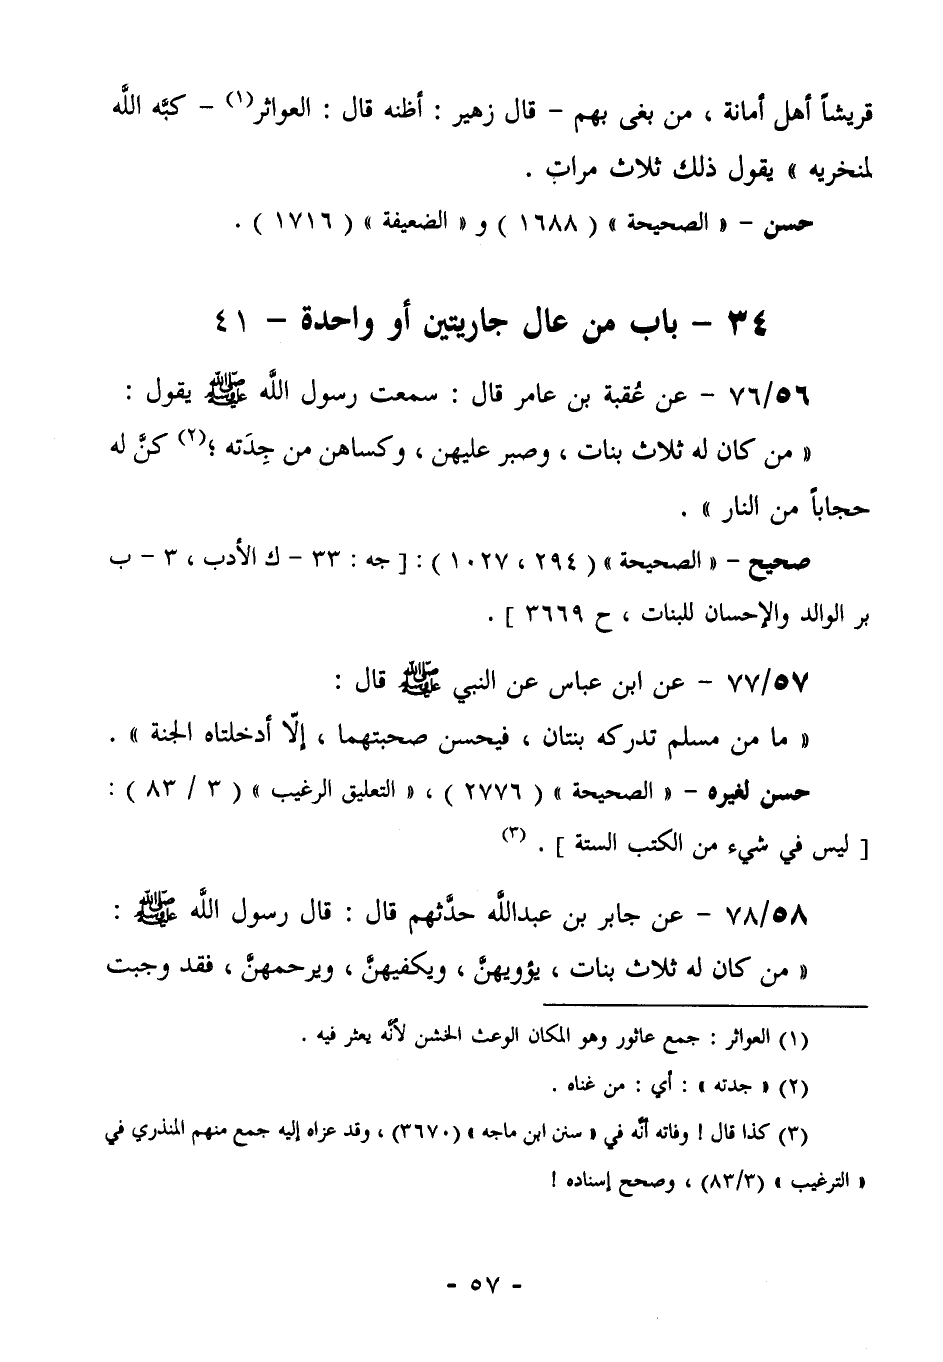 قريشاً أهل أمانة ، من بغى بهم – قال زهير : أظنه قال : العواثر(١) – كبَّه اللَّه
لمنخريه » يقول ذلك ثلاث مرات .
حسن – « الصحيحة » ( ١٦٨٨ ) و « الضعيفة » ( ١٧١٦ ) .
٣٤ – باب من عال جاريتين أو واحدة – ٤١
٧٦/٥٦ – عن عُقبة بن عامر قال : سمعت رسول اللَّه ﷺ يقول :
« من كان له ثلاث بنات ، وصبر عليهن ، وكساهن من جِدَته ؛(٢) كنَّ له
حجاباً من النار » .
صحيح – « الصحيحة » ( ٢٩٤ ، ١٠٢٧ ) : [ جه : ٣٣ – ك الأدب ، ٣ – ب
بر الوالد والإحسان للبنات ، ح ٣٦٦٩ ] .
٧٧/٥٧ – عن ابن عباس عن النبي ﷺ قال :
« ما من مسلم تدركه بنتان ، فيحسن صحبتهما ، إلّا أدخلتاه الجنة » .
حسن لغيره – « الصحيحة » ( ٢٧٧٦ ) ، « التعليق الرغيب » ( ٣ / ٨٣ ) :
[ ليس في شيء من الكتب الستة ] . (٣)
٧٨/٥٨ – عن جابر بن عبداللَّه حدَّثهم قال : قال رسول اللَّه ﷺ :
« من كان له ثلاث بنات ، يؤويهنَّ ، ويكفيهنَّ ، ويرحمهنَّ ، فقد وجبت
(١) العواثر : جمع عاثور وهو المكان الوعث الخشن لأنَّه يعثر فيه .
(٢) « جدته » : أي : من غناه .
(٣) كذا قال ! وفاته أنَّه في « سنن ابن ماجه » (٣٦٧٠) ، وقد عزاه إليه جمع منهم المنذري في
« الترغيب » (٨٣/٣) ، وصحح إسناده !
- ٥٧ -